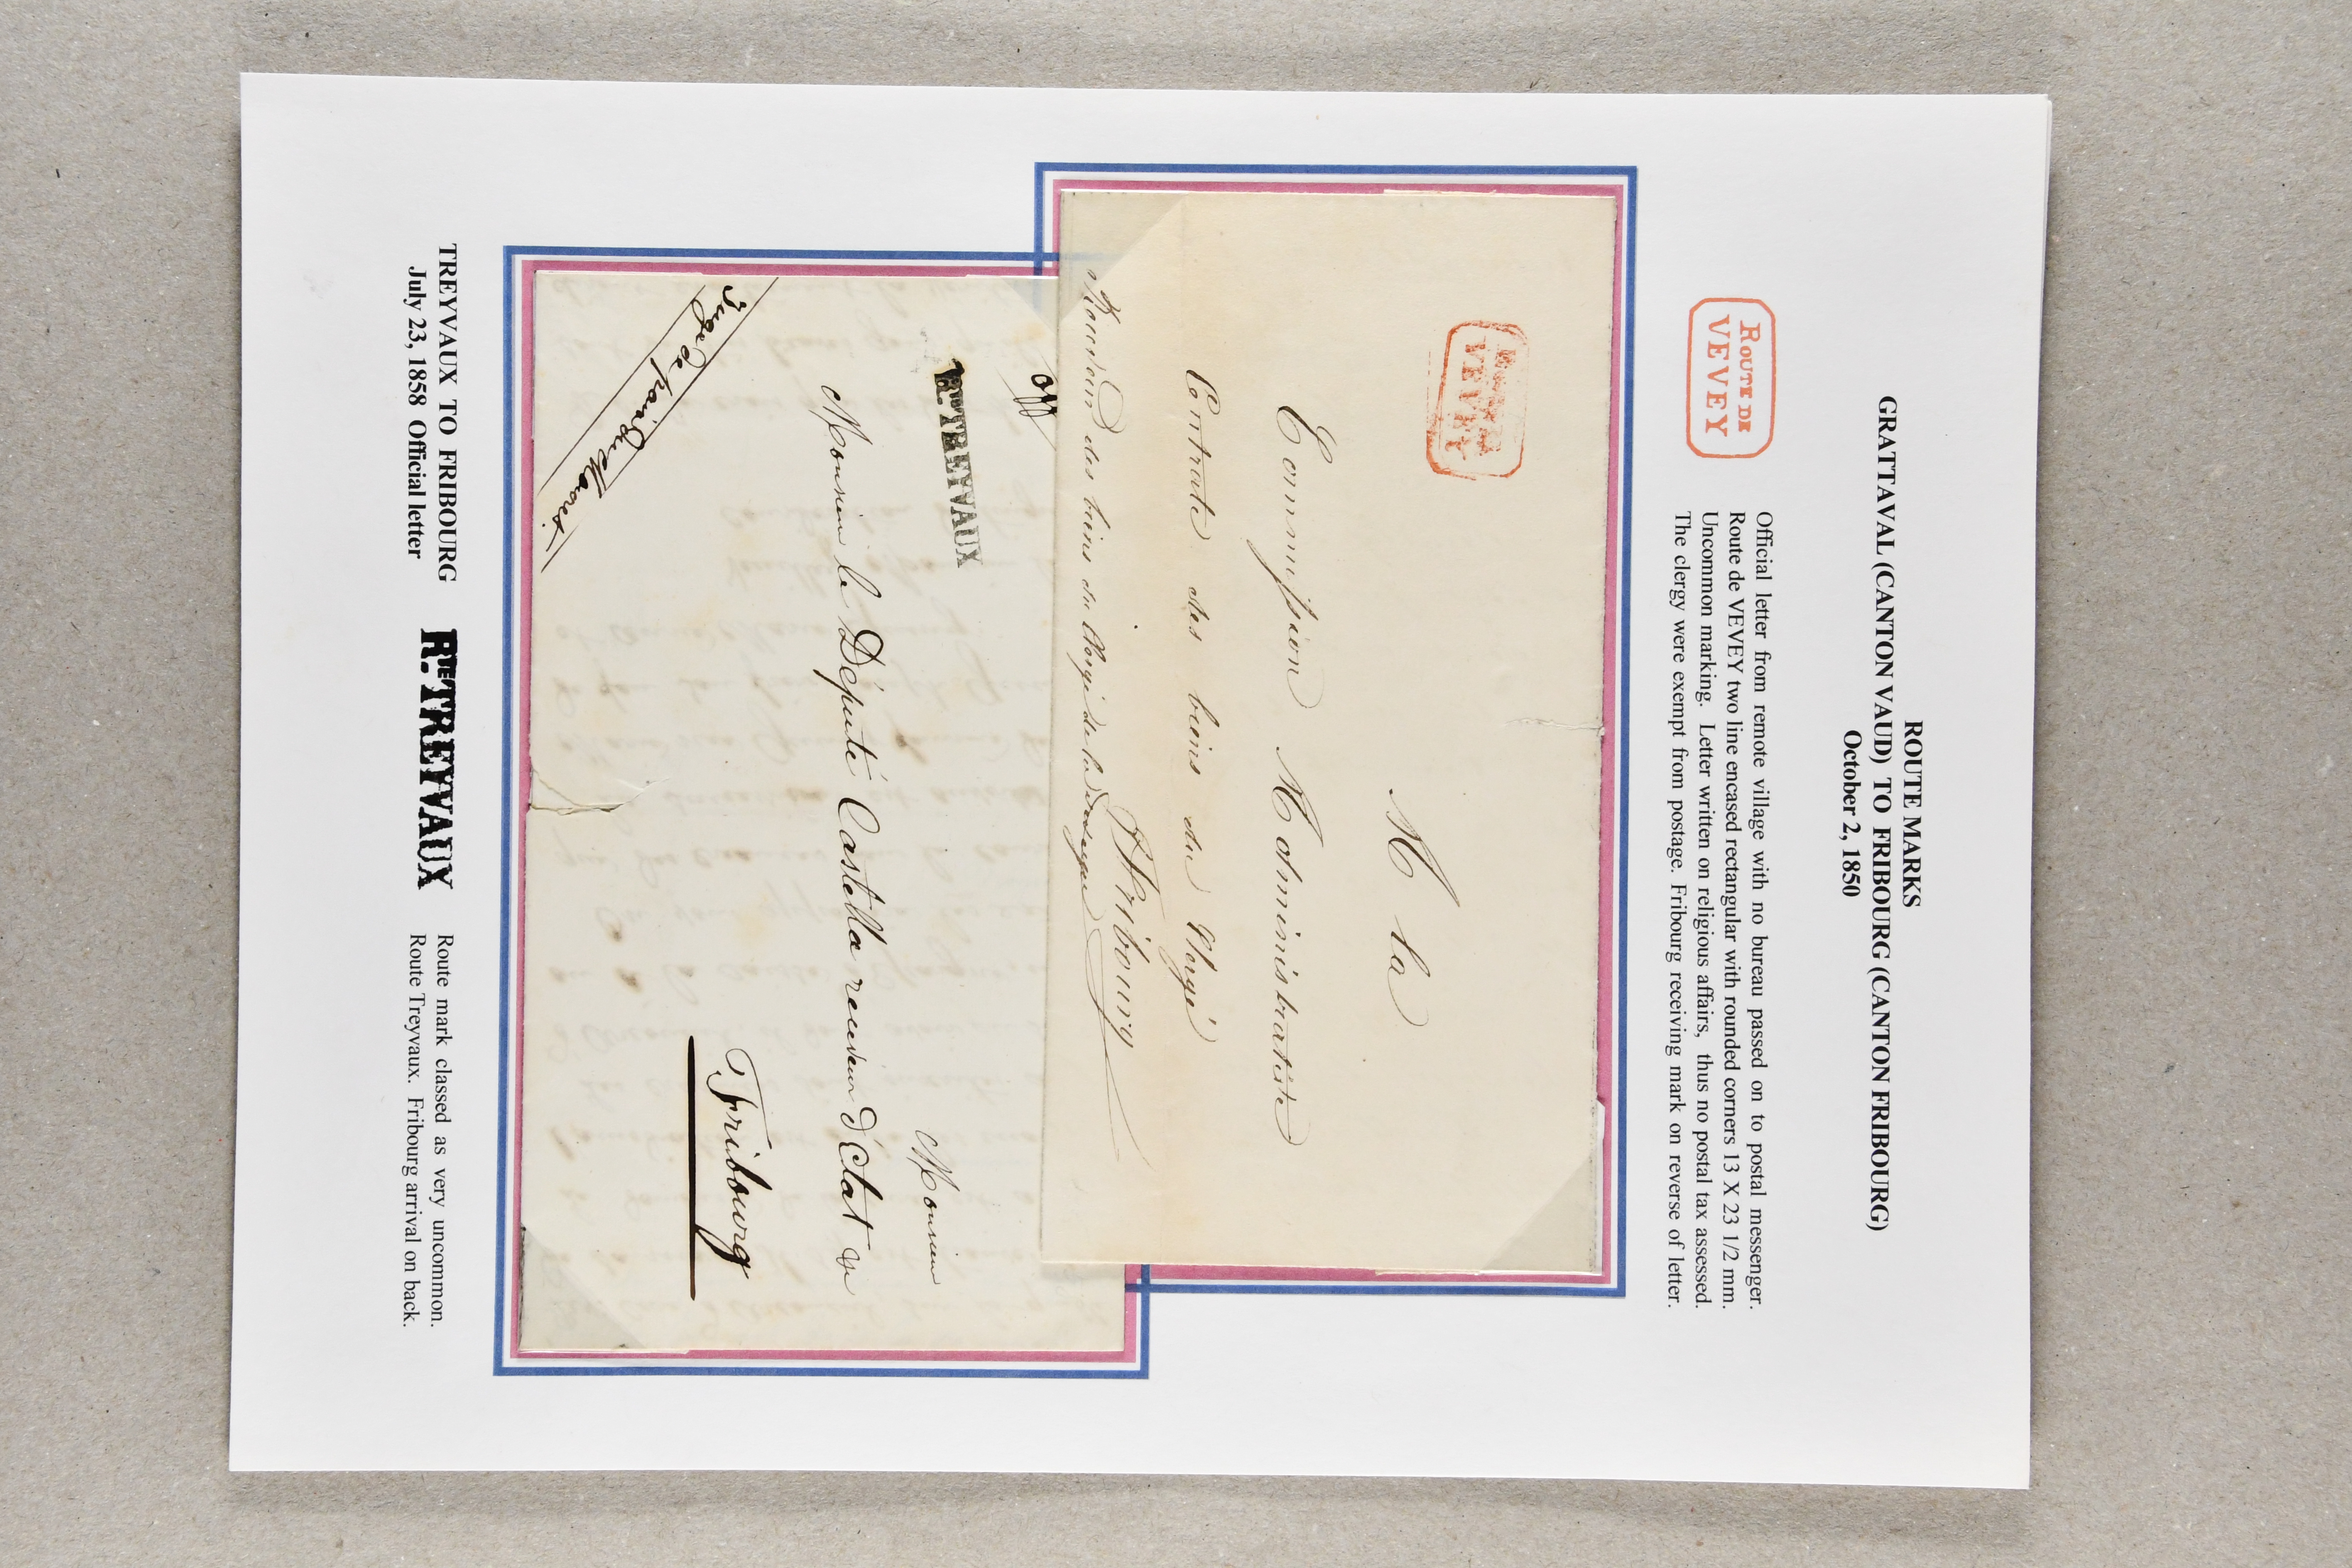 ROUTE MARKS
GRATTAVAL (CANTON VAUD) TO FRIBOURG (CANTON FRIBOURG)
October 2, 1850
ROUTE DE
VEVEY
Official letter from remote village with no bureau passed on to postal messenger.
Route de VEVEY two line encased rectangular with rounded corners 13 X 23 1/2 mm.
Uncommon marking. Letter written on religious affairs, thus no postal tax assessed.
The clergy were exempt from postage. Fribourg receiving mark on reverse of letter.
ROUTE DE
VEVEY
A la
Commission Administrative
Centrale des biens du Clergé
à Fribourg
des biens du Clergé de la
off
R.TE TREYVAUX
Monsieur
Monsieur le Député Castella receveur d'Etat
à Fribourg
Juge de paix du
TREYVAUX TO FRIBOURG
July 23, 1858 Official letter
R.TE TREYVAUX
Route mark classed as very uncommon.
Route Treyvaux. Fribourg arrival on back.